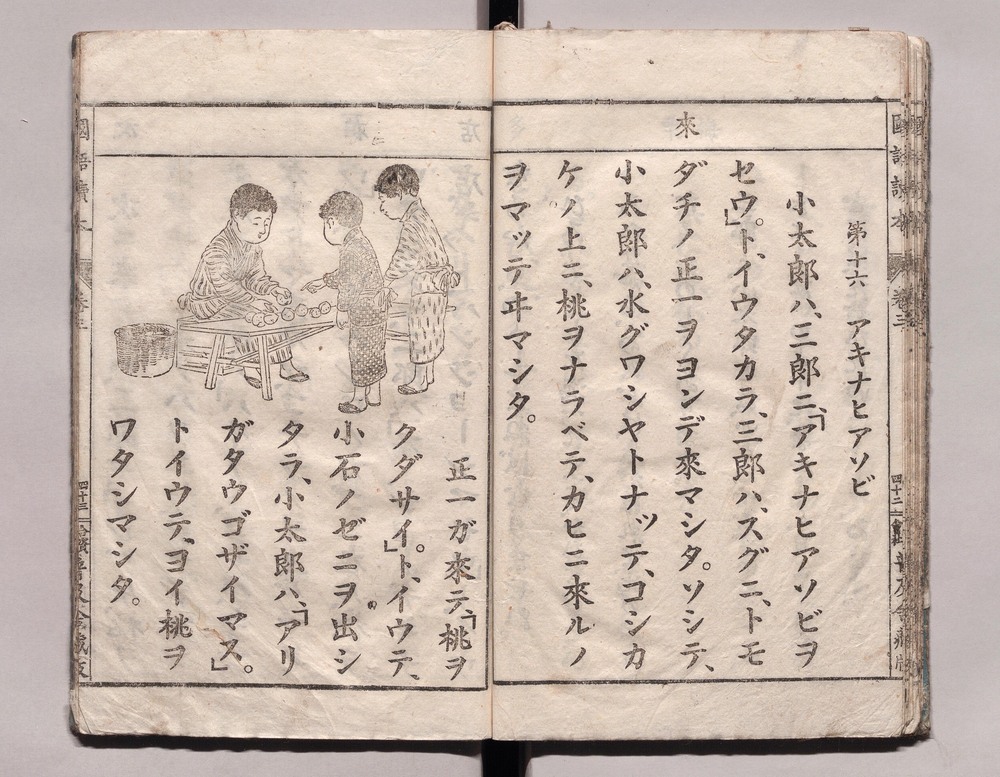 國語讀本
卷三
四十二
普及舍藏版
來
第十六 アキナヒアソビ
小太郎ハ、三郎ニ、「アキナヒアソビヲ
セウ。」ト、イウタカラ、三郎ハ、スグニ、トモ
ダチノ正一ヲヨンデ來マシタ。ソシテ、
小太郎ハ、水グワシヤトナッテ、コシカ
ケノ上ニ、桃ヲナラベテ、カヒニ來ルノ
ヲマッテヰマシタ。
正一ガ來テ、「桃ヲ
クダサイ。」ト、イウテ、
小石ノゼニヲ出シ
タラ、小太郎ハ、「アリ
ガタウゴザイマス。」
トイウテ、ヨイ桃ヲ
ワタシマシタ。
國語讀本
卷三
四十三